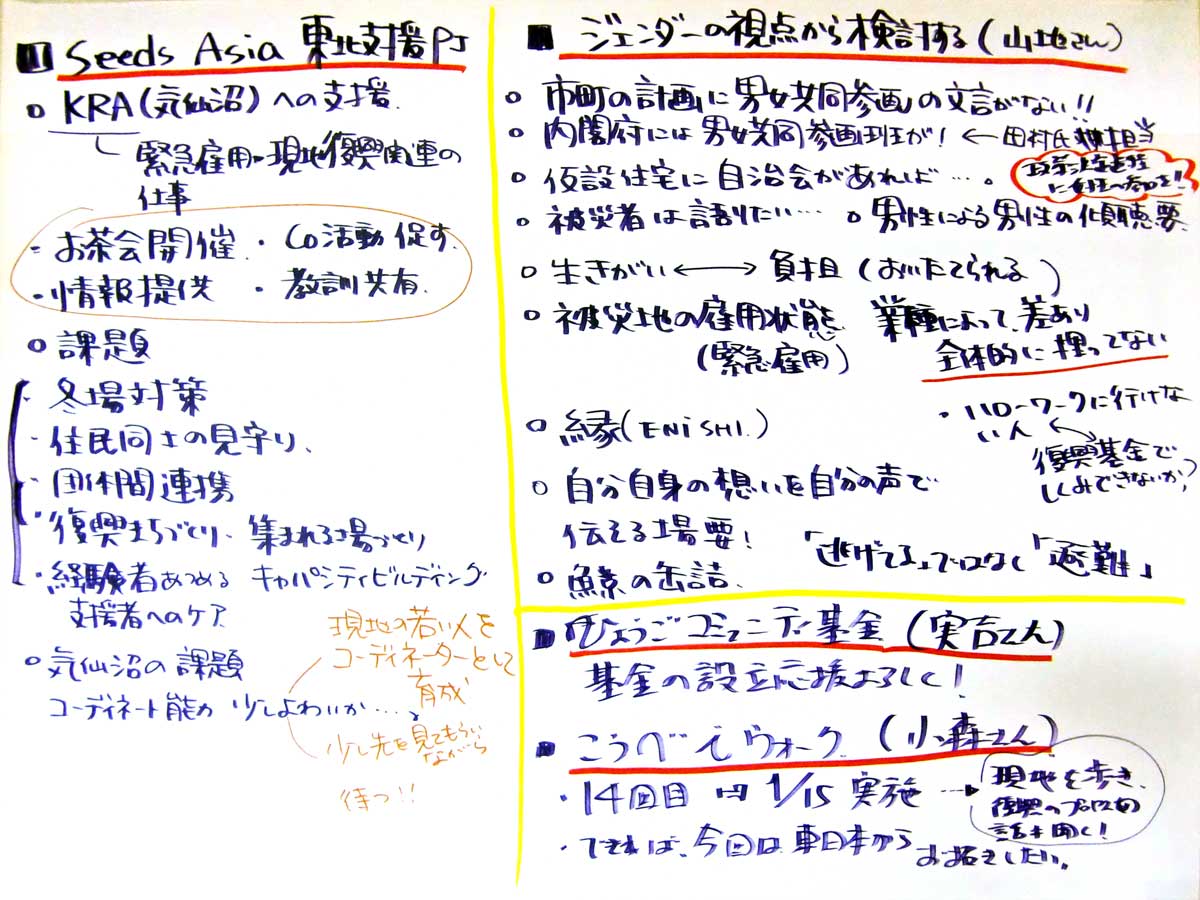 ■ Seeds Asia 東北支援PJ
○ KRA(気仙沼)への支援
緊急雇用・現地復興関連の
仕事
・お茶会開催 ・CO活動促す
・情報提供 ・教訓共有
○ 課題
・冬場対策
・住民同士の見守り、
・団体間連携
・復興まちづくり、集まれる場づくり
・経験者あつめる キャパシティビルディング
支援者へのケア
○ 気仙沼の課題
コーディネート能力 少しよわいか…。
現地の若い人を
コーディネーターとして
育成
少し先を見てもらい
ながら
待つ!!
■ ジェンダーの視点から検討する(山地さん)
○ 市町の計画に男女共同参画の文言がない!!
○ 内閣府には男女共同参画班が! ← 田村氏 担当
○ 仮設住宅に自治会があれば…。
に女性の参加を!!
○ 被災者は語りたい… ○ 男性による男性の傾聴要
○ 生きがい ←→ 負担(おいたてられる)
○ 被災地の雇用状態 業種によって差あり
(緊急雇用) 全体的に埋ってない
・ハローワークに行けな
い人
復興基金で
しくみできないか?
○ 縁(ENISHI.)
○ 自分自身の想いを自分の声で
伝える場要!
「逃げてる」ではなく「避難」
○ 魚の缶詰
■ ひょうごコミュニティ基金(実吉さん)
基金の設立応援よろしく!
■ こうべ iウォーク (小森さん)
・14回目 1/15 実施 …▶
現地を歩き、
復興のプロセスの
話を聞く!
・できれば、今回は東日本から お招きしたい。